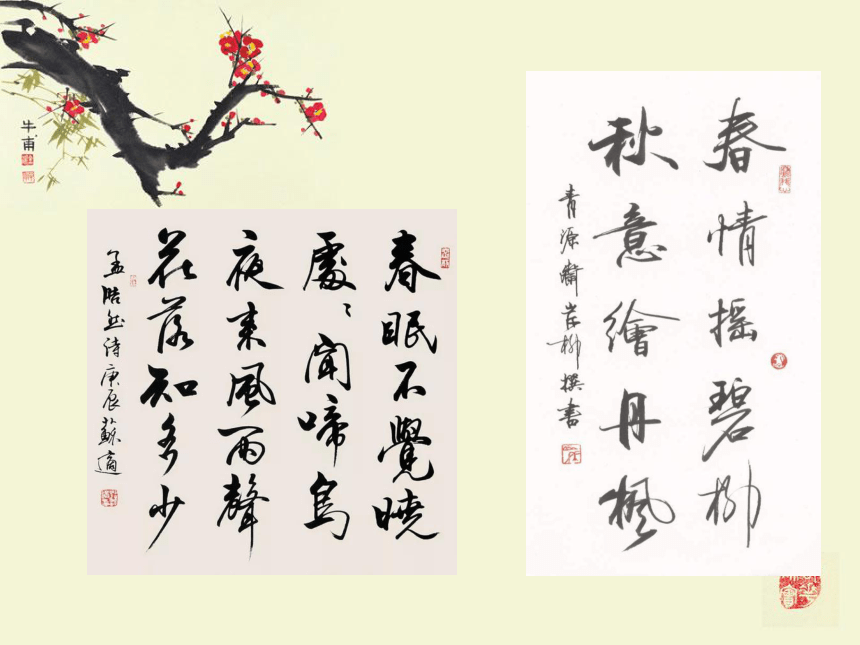 牛甫
春眠不覺曉
處〻聞啼鳥
夜来風雨聲
花落知多少
孟浩然诗庚辰蘇適
春情摇碧柳
秋意繪丹楓
青源
柳撰書